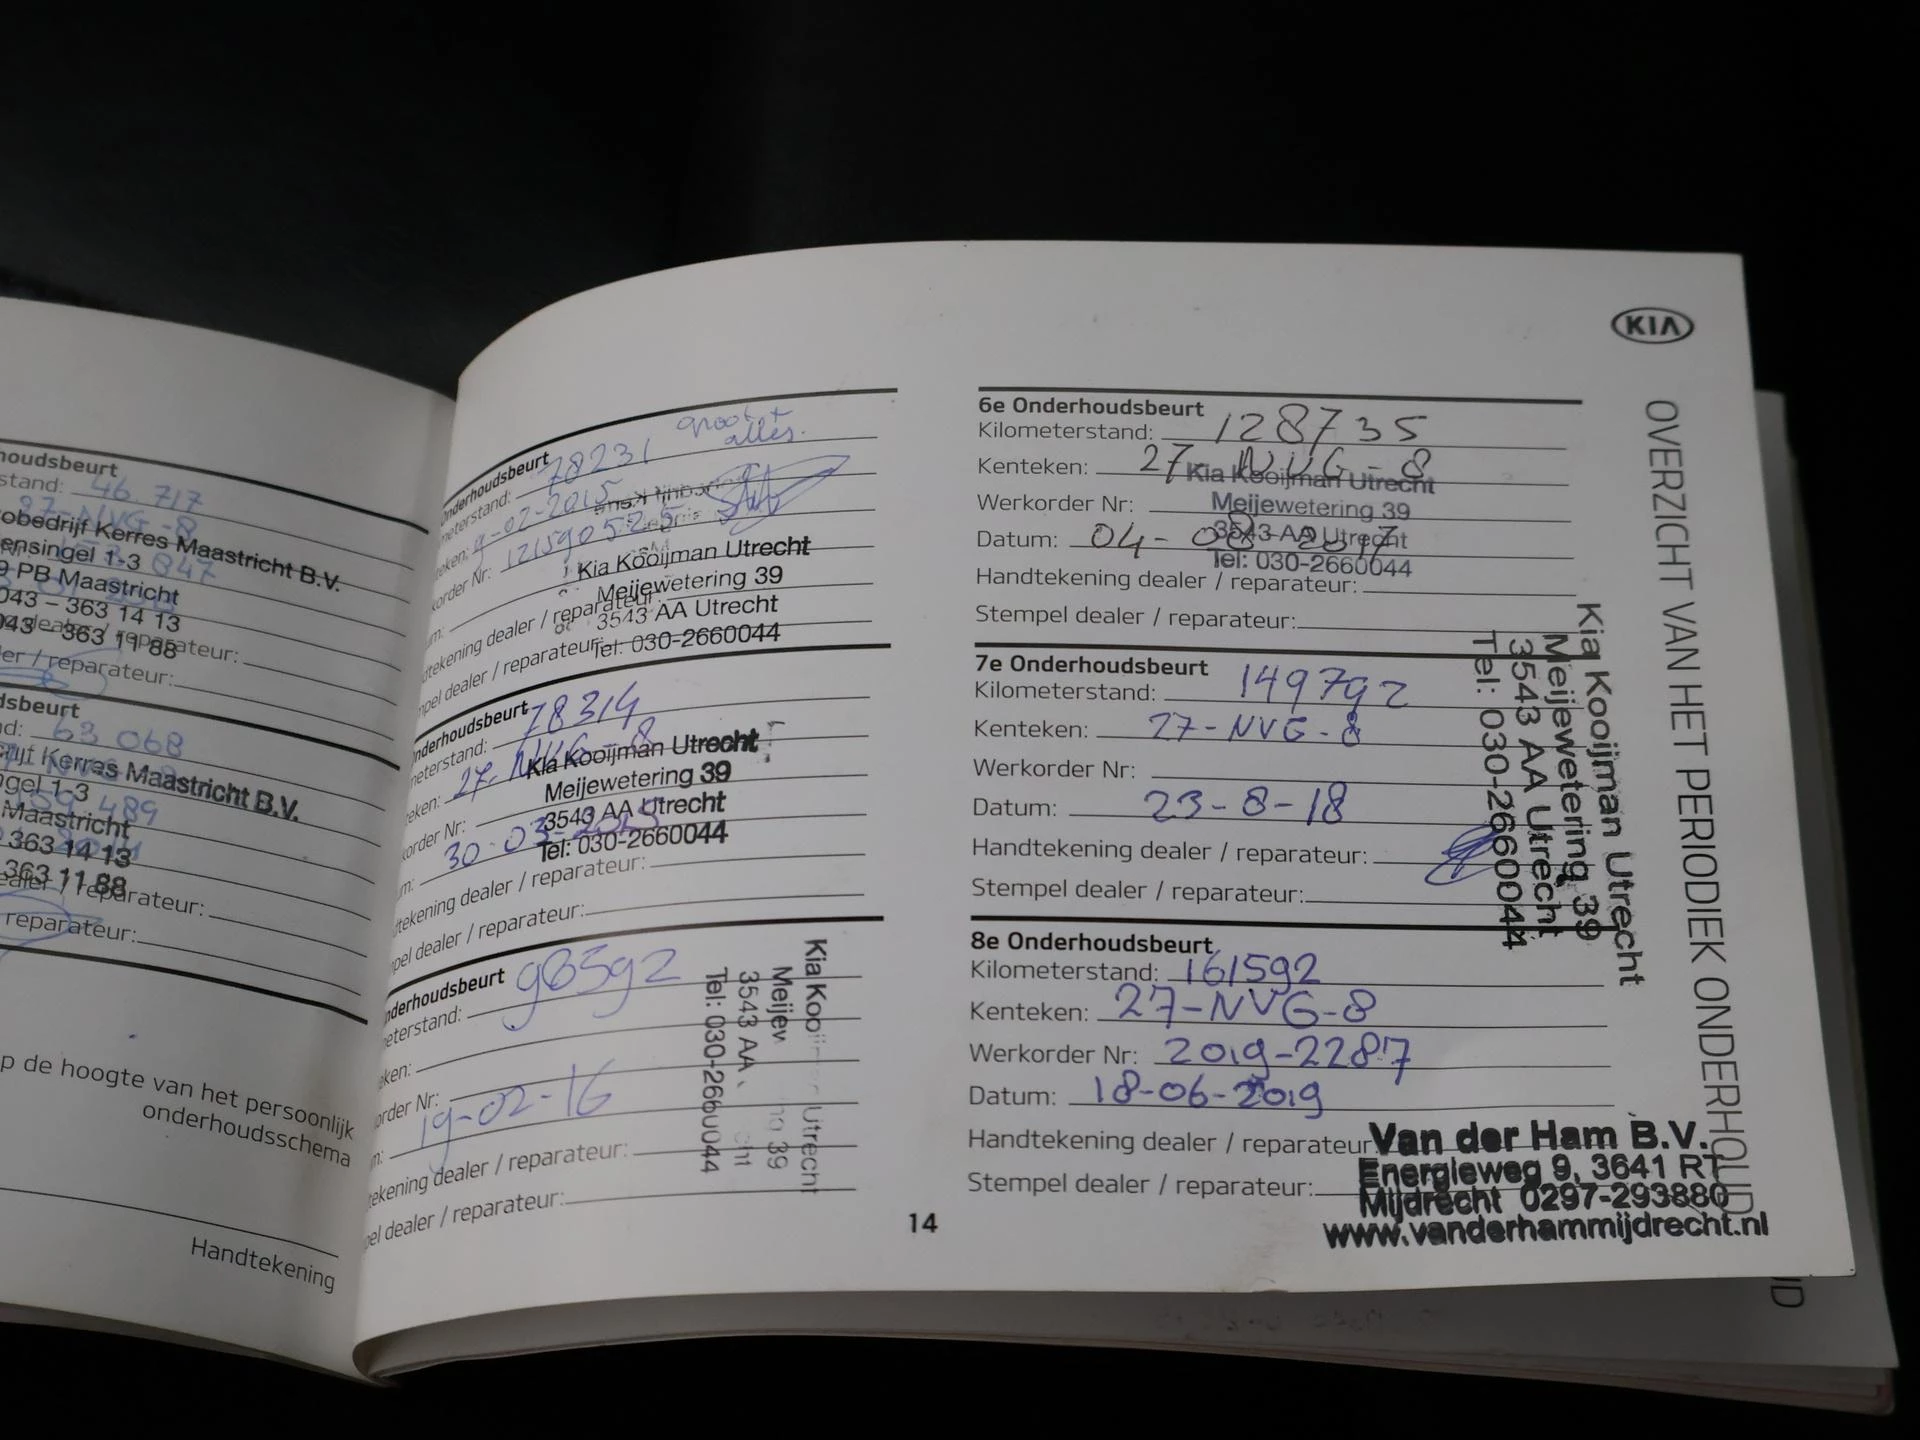 noudsbeurt
stand: 46.717
87-NVG-8
obedrijf Kerres Maastricht B.V.
ensingel 1-3
9 PB Maastricht
043 – 363 14 13
043 – 363 11 88
reparateur:
ler / reparateur:
dsbeurt
nd: 63 068
rijf Kerres Maastricht B.V.
gel 1-3
489
Maastricht
363 14 13
363 11 88
ealer / reparateur:
reparateur:
p de hoogte van het persoonlijk
onderhoudsschema
Handtekening
Onderhoudsbeurt
meterstand: 78231
alles.
teken: 9-02-2015
korder Nr: 121590525
Kia Kooijman Utrecht
Meijewetering 39
3543 AA Utrecht
Tel: 030-2660044
m:
dtekening dealer / reparateur:
mpel dealer / reparateur:
Onderhoudsbeurt
meterstand: 78314
teken: 27-NVG-8
Kia Kooijman Utrecht
Meijewetering 39
3543 AA Utrecht
Tel: 030-2660044
korder Nr:
m: 30-03-2015
dtekening dealer / reparateur:
pel dealer / reparateur:
nderhoudsbeurt
eterstand: 98592
eken:
order Nr:
m: 19-02-16
tekening dealer / reparateur:
pel dealer / reparateur:
Kia Kooijman Utrecht
3543 AA
Tel: 030-2660044
14
KIA
OVERZICHT VAN HET PERIODIEK ONDERHOUD
6e Onderhoudsbeurt
Kilometerstand: 128735
Kenteken: 27-NVG-8
Werkorder Nr:
Datum: 04-08-2017
Kia Kooijman Utrecht
Meijewetering 39
3543 AA Utrecht
Tel: 030-2660044
Handtekening dealer / reparateur:
Stempel dealer / reparateur:
7e Onderhoudsbeurt
Kilometerstand: 149792
Kenteken: 27-NVG-8
Werkorder Nr:
Datum: 23-8-18
Handtekening dealer / reparateur:
Stempel dealer / reparateur:
Kia Kooijman Utrecht
Meijewetering 39
3543 AA Utrecht
Tel: 030-2660044
8e Onderhoudsbeurt
Kilometerstand: 161592
Kenteken: 27-NVG-8
Werkorder Nr: 2019-2287
Datum: 18-06-2019
Handtekening dealer / reparateur:
Stempel dealer / reparateur:
Van der Ham B.V.
Energieweg 9, 3641 RT
Mijdrecht 0297-293880
www.vanderhammijdrecht.nl